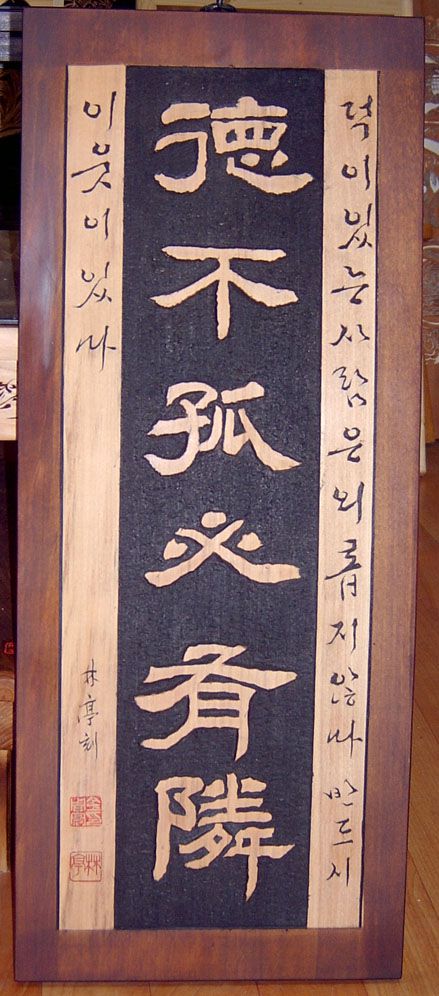 덕이있는사람은외롭지않다 반드시
德不孤必有隣
이웃이있다
林亭刻
林亭